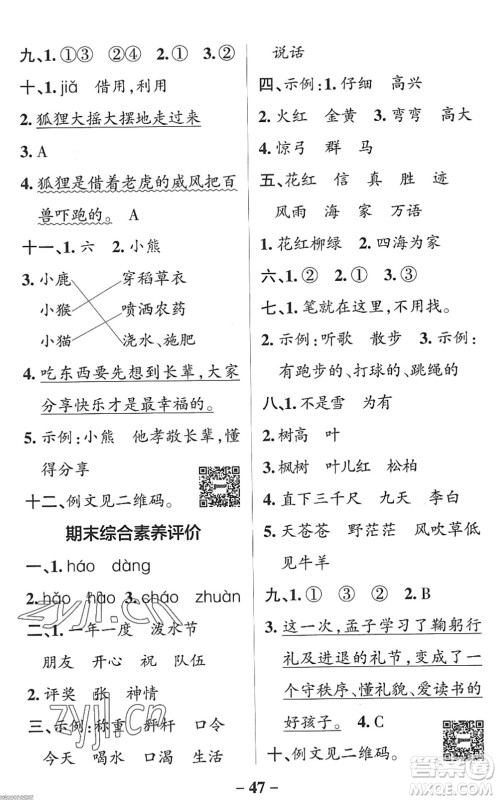 九、①③　②④　2.①　3.②
十、1.jiǎ　借用，利用
2.狐狸大摇大摆地走过来
3.A
4.狐狸是借着老虎的威风把百
兽吓跑的。　A
十一、1.六　2.小熊
3.小鹿　穿稻草衣
小猴　喷洒农药
小猫　浇水、施肥
4.吃东西要先想到长辈，大家
分享快乐才是最幸福的。
5.示例：小熊　他孝敬长辈，懂
得分享
十二、例文见二维码。
期末综合素养评价
一、1.háo　dàng
2.hǎo　hào　3.cháo　zhuàn
二、1.一年一度　泼水节
朋友　开心　祝　队伍
2.评奖　张　神情
三、示例：称重　秤杆　口令
今天　喝水　口渴　生活
说话
四、示例：1.仔细　高兴
2.火红　金黄　3.弯弯　高大
4.惊弓　群　马
五、花红　信　真　胜　迹
风雨　海　家　万语
1.花红柳绿　2.四海为家
六、1.②　2.①　3.③
七、1.笔就在这里，不用找。
2.示例：听歌　散步　3.示例：
有跑步的、打球的、跳绳的
八、1.不是雪　为有
2.树高　叶
3.枫树　叶儿红　松柏
4.直下三千尺　九天　李白
5.天苍苍　野茫茫　风吹草低
见牛羊
九、1.①　③　②　2.B
3.这一次，孟子学习了鞠躬行
礼及进退的礼节，变成了一
个守秩序、懂礼貌、爱读书的
好孩子。　4.C
十、例文见二维码。
- 47 -
zyjl.cn